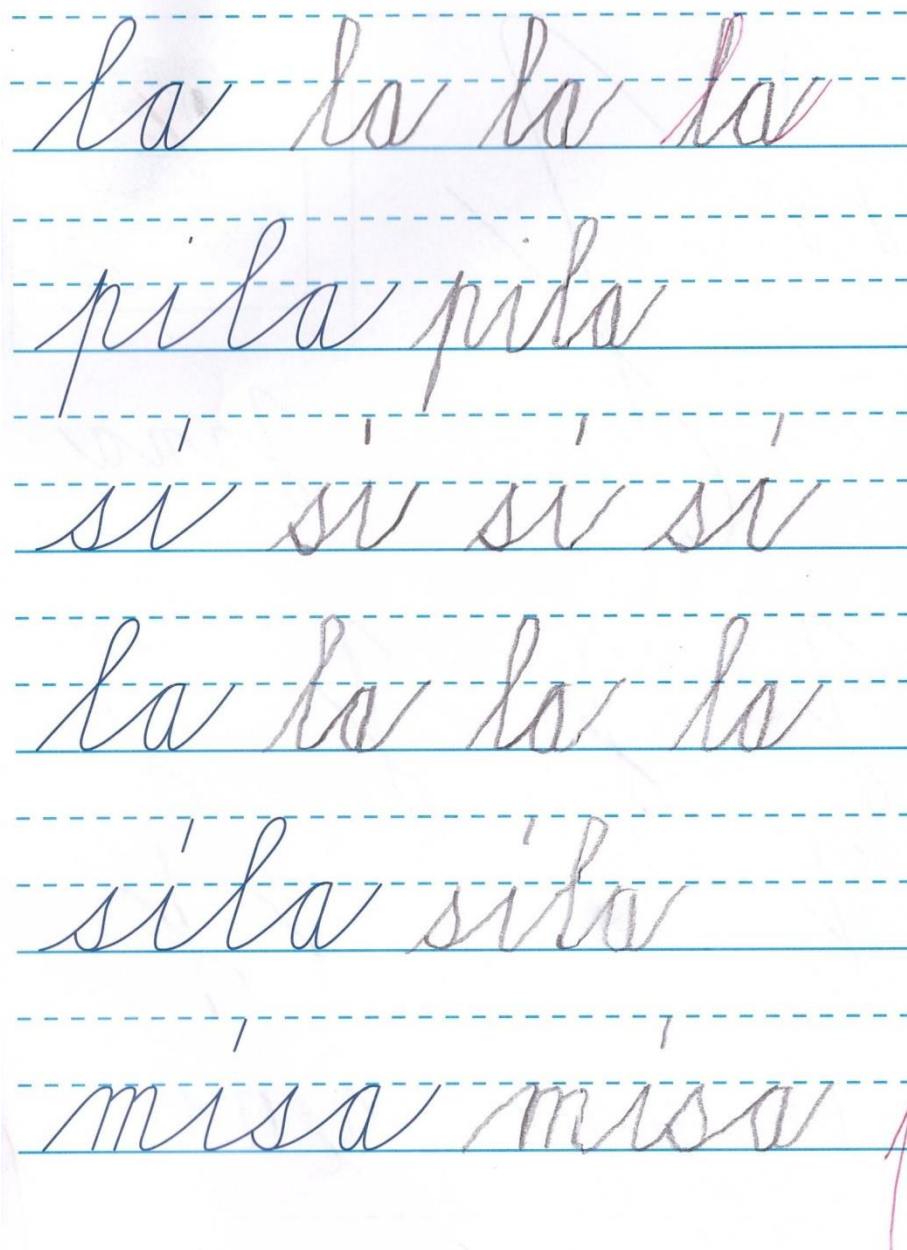 la la la la
pila pila
sí sí sí sí
la la la la
síla síla
mísa mísa